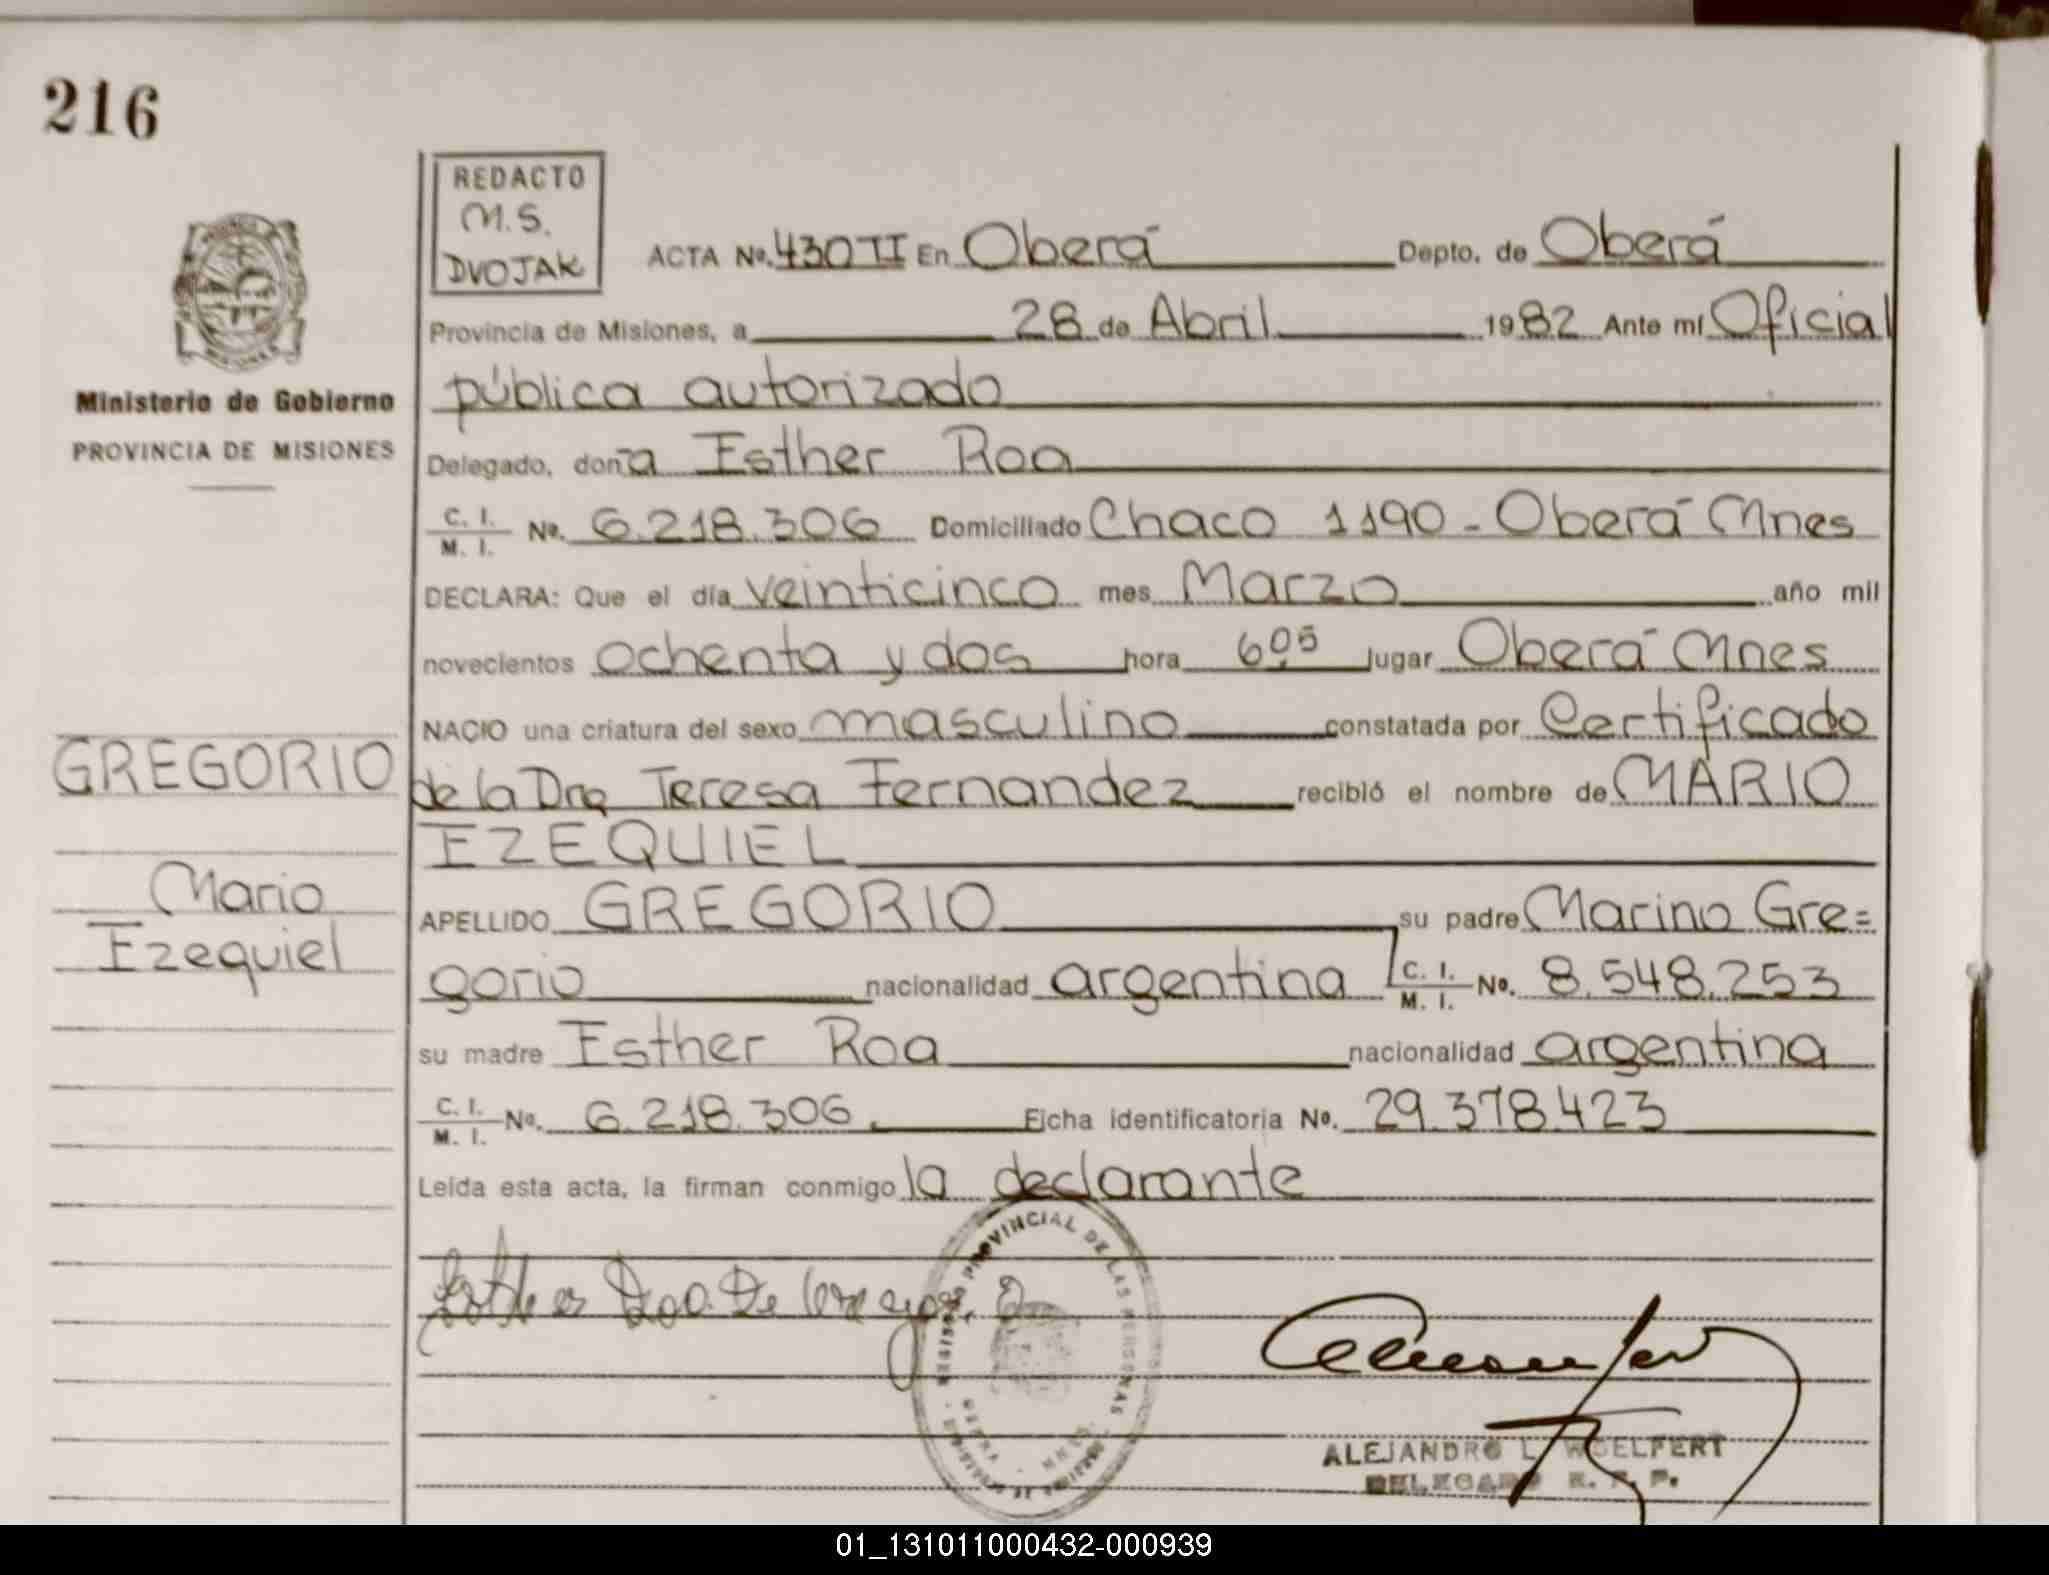 216
REDACTO
M.S.
DVOJAK
ACTA No. 430 TI En Oberá Depto. de Oberá
Provincia de Misiones, a 28 de Abril 1982 Ante mí Oficial
pública autorizado
Ministerio de Gobierno
PROVINCIA DE MISIONES
Delegado, doña Esther Roa
C. I. / M. I. No. 6.218.306 Domiciliado Chaco 1190 - Oberá Mnes
DECLARA: Que el día veinticinco mes Marzo año mil
novecientos ochenta y dos hora 6,05 lugar Oberá Mnes
NACIO una criatura del sexo masculino constatada por Certificado
GREGORIO
de la Dra Teresa Fernandez recibió el nombre de MARIO
IZEQUIEL
Mario
Izequiel
APELLIDO GREGORIO su padre Marino Gre=
gorio nacionalidad argentina C. I. / M. I. No. 8.548.253
su madre Esther Roa nacionalidad argentina
C. I. / M. I. No. 6.218.306 Ficha identificatoria No. 29.378.423
Leída esta acta, la firman conmigo la declarante
Esther Roa De
REGISTRO PROVINCIAL DE LAS PERSONAS
ALEJANDRO L. WOELFERT
DELEGADO R. P. P.
01_131011000432-000939